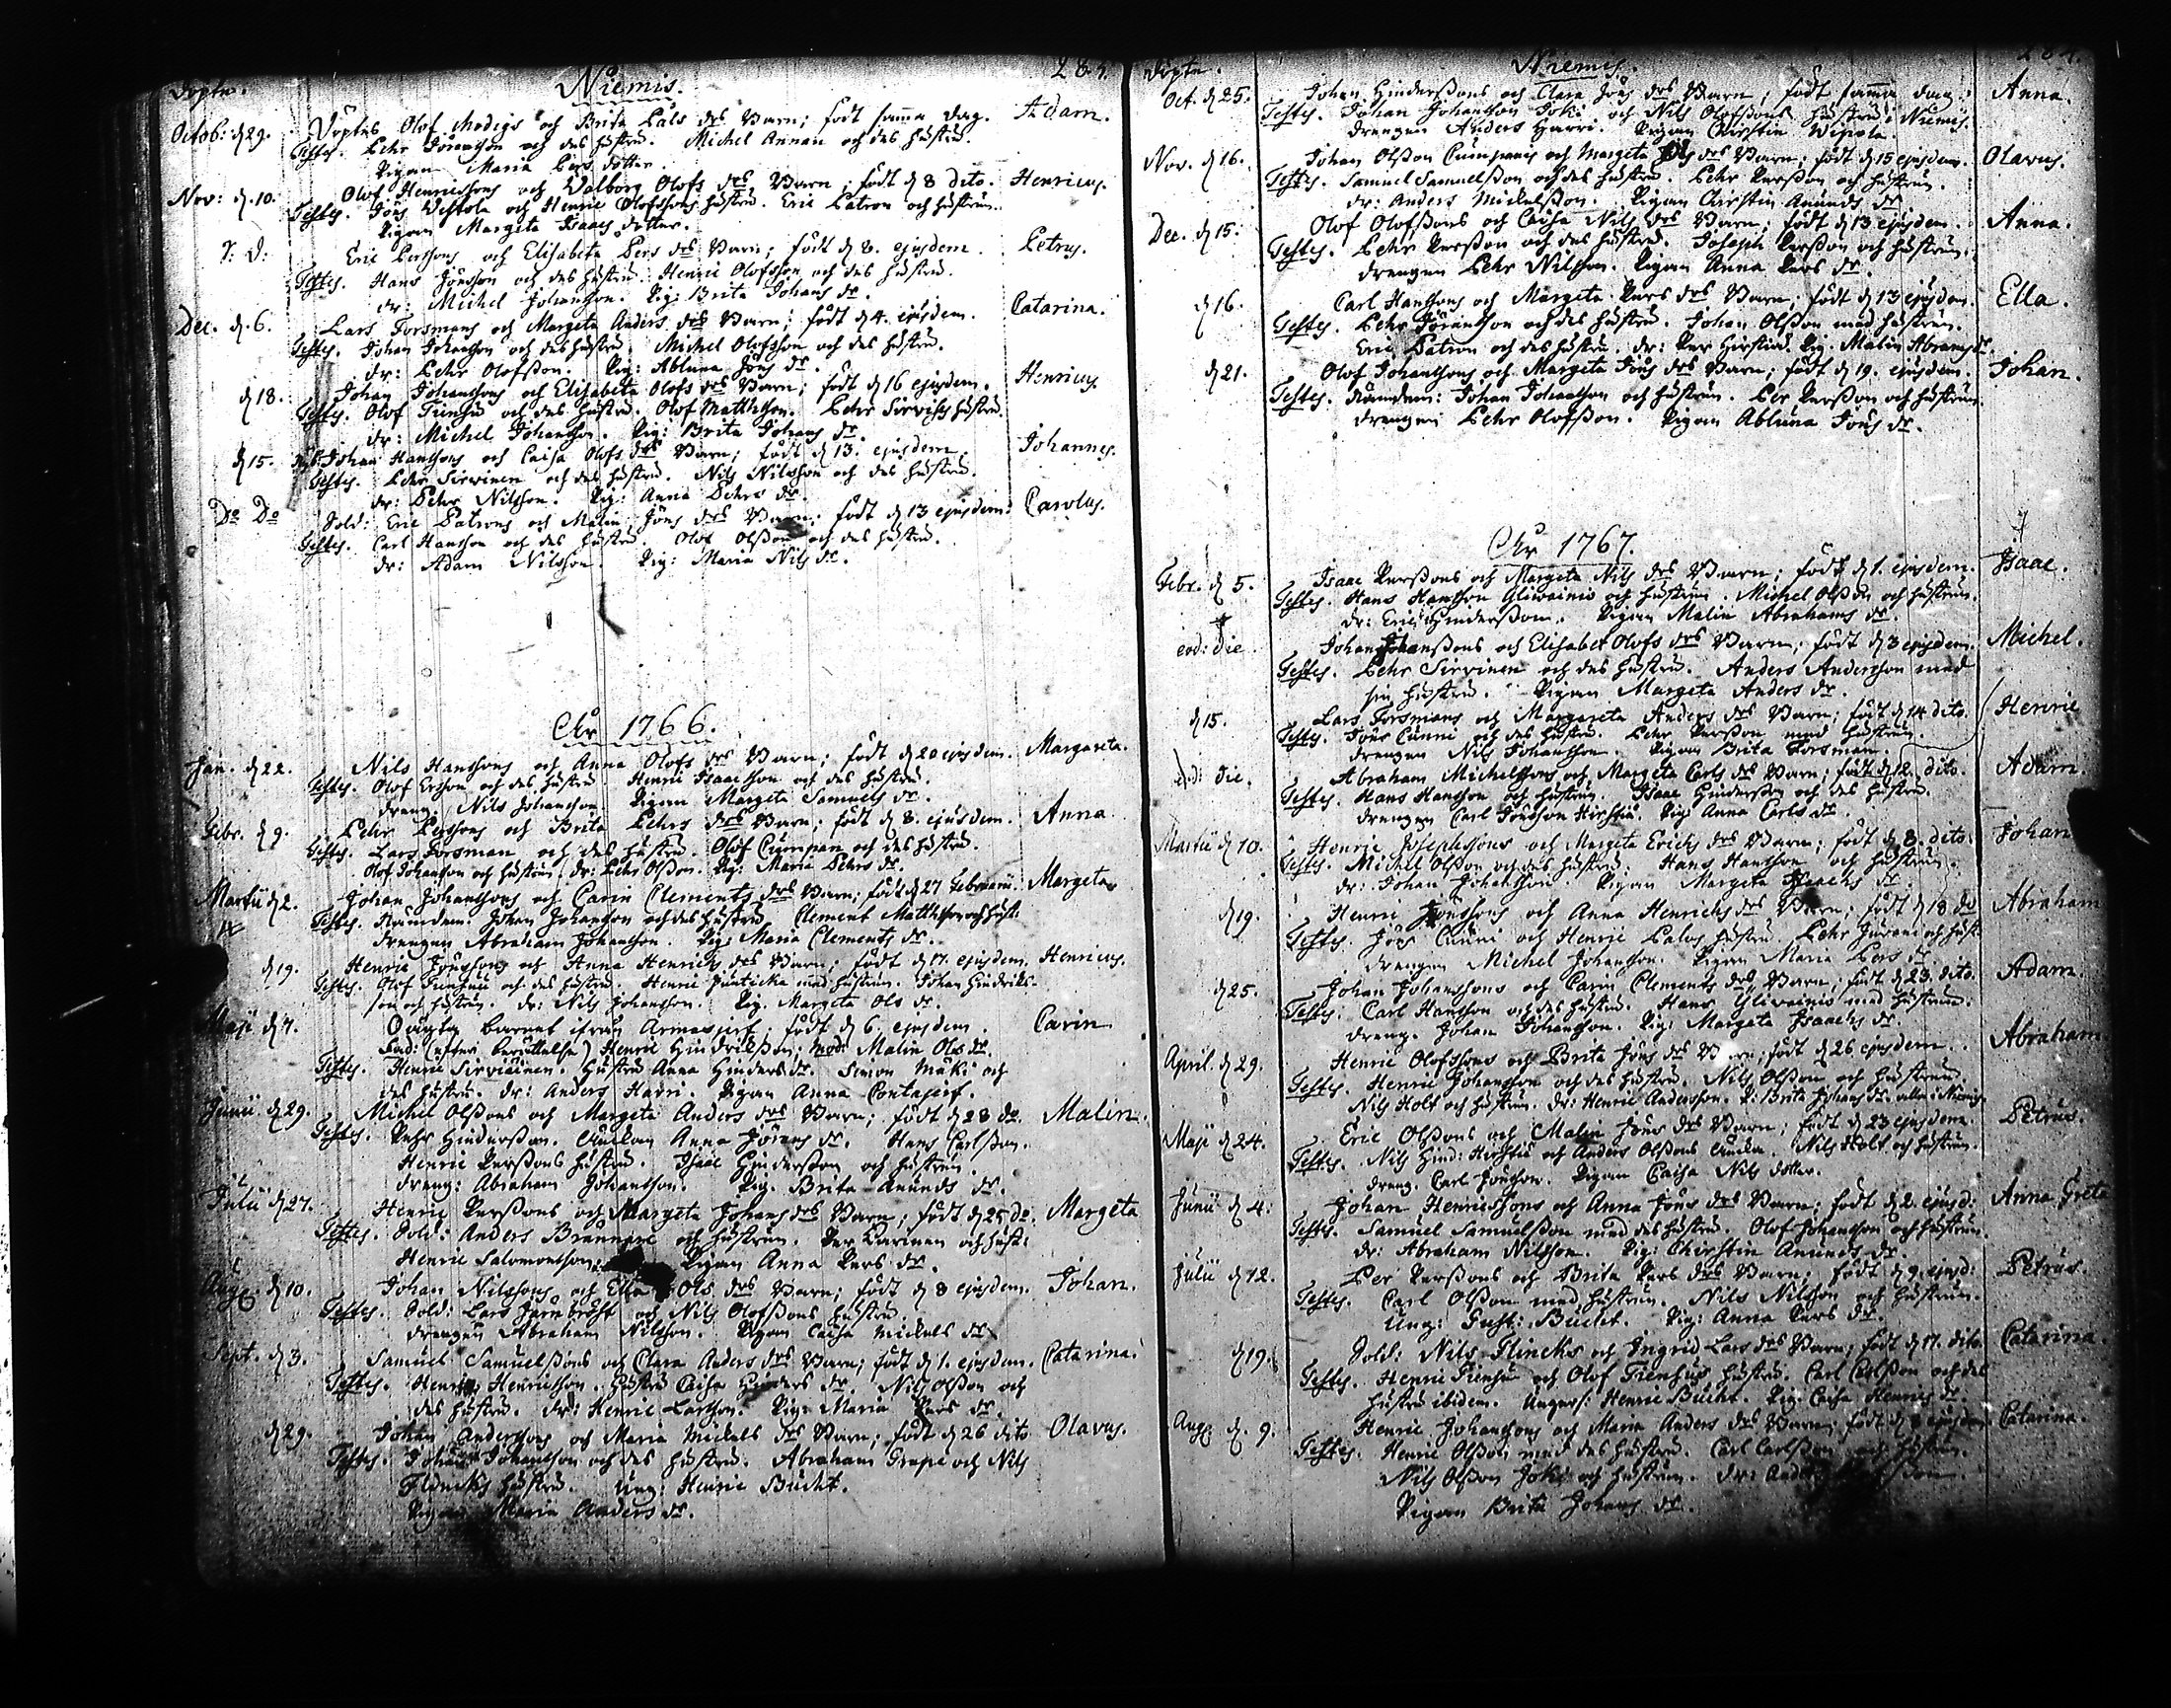 Döpte. Niemis. 283.
Octob: d 29. Döptes Olof Modigs och Brita Påls drs Barn; född samma dag. Adam.
Testes. Pehr Joransson och des hustru. Michel Annan och des hustru.
Pigan Maria Lars dotter.
Nov: d. 10. Olof Henricssons och Walborg Olofs drs Barn; född d 8 dito. Henricus.
Testes. Jöns Westola och Henric Olofssons hustru. Eric Patron och hustrun.
Pigan Margeta Isaacs dotter.
Eric Perssons och Elisabeta Pers drs Barn; född d 8. ejusdem. Petrus.
Testes. Hans Jönsson och des hustru. Henric Olofsson och des hustru.
dr: Michel Johansson. Pig: Brita Johans dr.
Dec. d. 6. Lars Forsmans och Margeta Anders drs Barn; född d 4. ejusdem. Catarina.
Testes. Johan Johansson och des hustru. Michel Olofsson och des hustru.
dr: Pehr Olofsson. Pig: Abluna Jöns dr.
d 18. Johan Johanssons och Elisabeta Olofs drs Barn; född d 16 ejusdem. Henricus.
Testes. Olof Fienhu och des hustru. Olof Matthsson. Pehr Sirvises hustru.
dr: Michel Johansson. Pig: Brita Johans dr.
d 15. Johan Hanssons och Caisa Olofs drs Barn; född d 13. ejusdem. Johannes.
Testes. Pehr Sirvinen och des hustru. Nils Nilsson och des hustru.
dr: Pehr Nilsson. Pig: Anna Pehrs dr.
Do Do Sold: Eric Patrons och Malin Jöns drs Barn; född d 13 ejusdem. Carolus.
Testes. Carl Hansson och des hustru. Olof Olsson och des hustru.
dr: Adam Nilsson. Pig: Maria Nils dr.
År 1766.
Jan. d 22. Nils Hanssons och Anna Olofs drs Barn; född d 20 ejusdem. Margareta.
Testes. Olof Ersson och des hustru Henric Isaacsson och des hustru.
dreng. Nils Johansson. Pigan Margeta Samuels dr.
Febr. d 9. Pehr Perssons och Brita Pehrs drs Barn; född d 8. ejusdem. Anna.
Testes. Lars Forsman och des hustru. Olof Cumpan och des hustru.
Olof Johansson och hustrun. dr: Pehr Olsson. Pig: Maria Pehrs dr.
Martii d 2. Johan Johanssons och Carin Clements drs Barn; född d 27 Februarii. Margeta.
Testes. Nämdem: Johan Johansson och des hustru. Clement Matthsson och hust:
drengen Abraham Johansson. Pig: Maria Clements dr.
d 19. Henric Jönssons och Anna Henrichs drs Barn; född d 17. ejusdem. Henricus.
Testes. Olof Fienhu och des hustru. Henric Junticka med hustrun. Johan Hindriks-
son och hustrun. dr: Nils Johansson. Pig. Margeta Ols dr.
Maji d 7. Oägta barnet ifrån Armasjerf; född d 6. ejusdem. Carin.
Fad: (efter berättelse) Henric Hindriksson; mod: Malin Ols dr.
Testes. Henric Sirviäinen. Hustru Anna Hinders dr. Simon Mäki och
des hustru. dr: Anders Harri. Pigan Anna Contajerf.
Junii d 29. Michel Olssons och Margeta Anders drs Barn; född d 28 do. Malin.
Testes. Pehr Hindersson. Änckan Anna Jörans dr. Hans Carlsson.
Henric Perssons hustru. Isaac Hindersson och hustrun.
dreng: Abraham Johansson. Pig. Brita Anunds dr.
Julii d 27. Henric Perssons och Margeta Johans drs Barn; född d 25 do. Margeta
Testes. Sold: Anders Brännare och hustrun. Per Carinen och hust:
Henric Salomonsson. Pigan Anna Pers dr.
Aug: d 10. Johan Nilssons och Ella Ols drs Barn; född d 8 ejusdem. Johan.
Testes. Sold: Lars Jernbröst och Nils Olofssons hustru
drengen Abraham Nilsson. Pigan Caisa Mickels dr.
Sept. d 3. Samuel Samuelssons och Clara Anders drs Barn; född d 1. ejusdem. Catarina.
Testes. Henric Henricsson. Hustru Caisa Hinders dr. Nils Olsson och
des hustru. dr: Henric Larsson. Pig: Maria Pers dr.
d 29. Johan Anderssons och Maria Mickels drs Barn; född d 26 dito Olavus.
Testes. Johan Johansson och des hustru. Abraham Grape och Nils
hustru. Ung: Henric Bucht.
Pigan Maria Anders dr.
Döpte. Niemis. 284.
Oct. d 25. Johan Hinderssons och Clara Jöns drs Barn; född samma dag. Anna.
Testes. Johan Johansson Joki och Nils Olofssons hustru i Niemis.
Drengen Anders Harri. Pigan Christin Wipola.
Nov. d 16. Johan Olsson Cumpanis och Margeta Ols drs Barn; född d 15 ejusdem. Olavus.
Testes. Samuel Samuelsson och des hustru. Pehr Persson och hustrun.
dr: Anders Mickelsson. Pigan Christin Anunds dr.
Dec. d 15. Olof Olofssons och Caisa Nils drs Barn; född d 13 ejusdem. Anna.
Testes. Pehr Persson och des hustru. Joseph Persson och hustrun.
drengen Pehr Nilsson. Pigan Anna Pers dr.
d 16. Carl Hanssons och Margeta Pers drs Barn; född d 13 ejusdem. Ella.
Testes. Pehr Joransson och des hustru. Johan Olsson med hustrun.
Eric Patron och des hustru. dr: Per Hirstiö. Pig. Malin Abrams dr.
d 21. Olof Johanssons och Margeta Jöns drs Barn; född d 19. ejusdem. Johan.
Testes. Nämdem: Johan Johansson och hustrun. Per Persson och hustrun.
drengen Pehr Olofsson. Pigan Abluna Jöns dr.
År 1767.
Febr. d 5. Isaac Perssons och Margeta Nils drs Barn; född d 1. ejusdem. Isaac.
Testes. Hans Hansson Yliwainio och hustrun. Michel Olsson och hustrun.
dr: Eric Hindersson. Pigan Malin Abrahams dr.
eod: die Johan Johanssons och Elisabet Olofs drs Barn; född d 3 ejusdem. Michel.
Testes. Pehr Sirvinen och des hustru. Anders Andersson med
sin hustru. Pigan Margeta Anders dr.
d 15. Lars Forsmans och Margareta Anders drs Barn; född d 14 dito. Henric
Testes. Jöns Cunni och des hustru. Pehr Persson med hustrun.
drengen Nils Johansson. Pigan Brita Forsman.
eod: die. Abraham Michelssons och Margeta Carls drs Barn; född d 12. dito. Adam.
Testes. Hans Hansson och hustrun. Isaac Hindersson och des hustru.
drengen Carl Jönsson Hirstiö. Pig: Anna Carls dr.
Martii d 10. Henric Josephssons och Margeta Erichs drs Barn; född d 8. dito. Johan
Testes. Michel Olsson och des hustru. Hans Hansson och hustrun.
dr: Johan Johansson. Pigan Margeta Isaachs dr.
d 19. Henric Jönssons och Anna Henrichs drs Barn; född d 18 do Abraham
Testes. Jöns Cunni och Henric Palos hustru. Pehr och hust:
drengen Michel Johansson. Pigan Maria Pers dr.
d 25. Johan Johanssons och Carin Clements drs Barn; född d 23. dito. Adam.
Testes. Carl Hansson och des hustru. Hans Yliwainio med hustrun.
dreng. Johan Johansson. Pig: Margeta Isaachs dr.
April. d 29. Henric Olofssons och Brita Jöns drs Barn; född d 26 ejusdem. Abraham
Testes. Henric Johansson och des hustru. Nils Olsson och hustrun.
Nils Holt och hustrun. dr: Henric Andersson. P: Brita Johans dr. alla i Niemis.
Maji d 24. Eric Olssons och Malin Jöns drs Barn; född d 23 ejusdem. Petrus.
Testes. Nils Hind: Hirstiö och Anders Olssons Äncka. Nils Holt och hustrun.
dreng. Carl Jönsson. Pigan Caisa Nils dotter.
Junii d 4. Johan Henricssons och Anna Jöns drs Barn; född d 2. ejusd: Anna Greta
Testes. Samuel Samuelsson med des hustru. Olof Johansson och hustrun.
dr: Abraham Nilsson. Pig: Christin Anunds dr.
Julii d 12. Per Perssons och Brita Pers drs Barn; född d 9. ejusd: Petrus.
Testes. Carl Olsson med hustrun. Nils Nilsson och hustrun.
Ung: Gust: Bucht. Pig: Anna Pers dr.
d 19. Sold: Nils Flincks och Ingrid Lars drs Barn; född d 17. dito. Catarina.
Testes. Henric Fienhu och Olof Fienhus hustru. Carl Carlsson och des
hustru ibidem. Ungers: Henric Bucht. Pig. Caisa Henrics dr.
Aug: d. 9. Henric Johanssons och Maria Anders drs Barn; född d 8 ejusdem Catarina.
Testes. Henric Olsson med des hustru. Carl Carlsson och hustrun.
Nils Olsson Joki och hustrun. dr: Anders
Pigan Brita Johans dr.